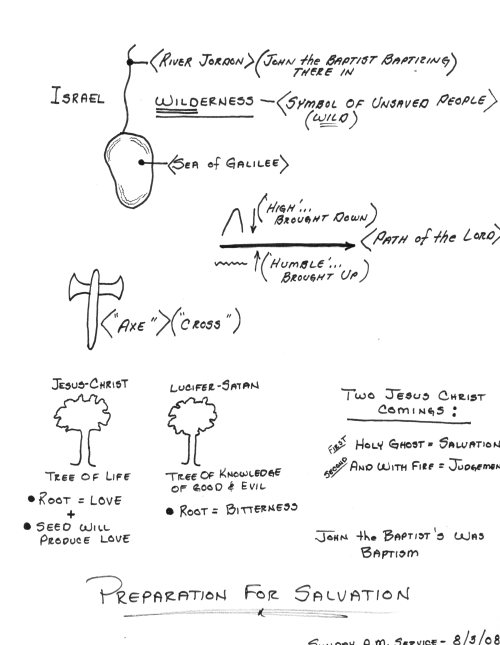 <RIVER JORDON>(JOHN the BAPTIST BAPTIZING
THERE IN)
ISRAEL
WILDERNESS — <SYMBOL OF UNSAVED PEOPLE>
(WILD)
<SEA of GALILEE>
('HIGH'...
BROUGHT DOWN)
<PATH of the LORD
('HUMBLE'...
BROUGHT UP)
<"AXE">("CROSS")
JESUS-CHRIST
LUCIFER-SATAN
TWO JESUS CHRIST
COMINGS:
FIRST HOLY GHOST = SALVATION
SECOND AND WITH FIRE = JUDGEMEN
TREE OF LIFE
TREE OF KNOWLEDGE
OF GOOD & EVIL
• ROOT = LOVE
+
• SEED WILL
PRODUCE LOVE
• ROOT = BITTERNESS
JOHN the BAPTIST'S WAS
BAPTISM
PREPARATION FOR SALVATION
SUNDAY A.M. SERVICE - 8/3/08